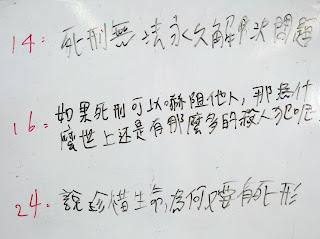 14: 死刑無法永久解決問題
16: 如果死刑可以嚇阻他人,那為什
麼世上还是有那麼多的殺人犯呢
24: 說珍惜生命,為何又要有死形